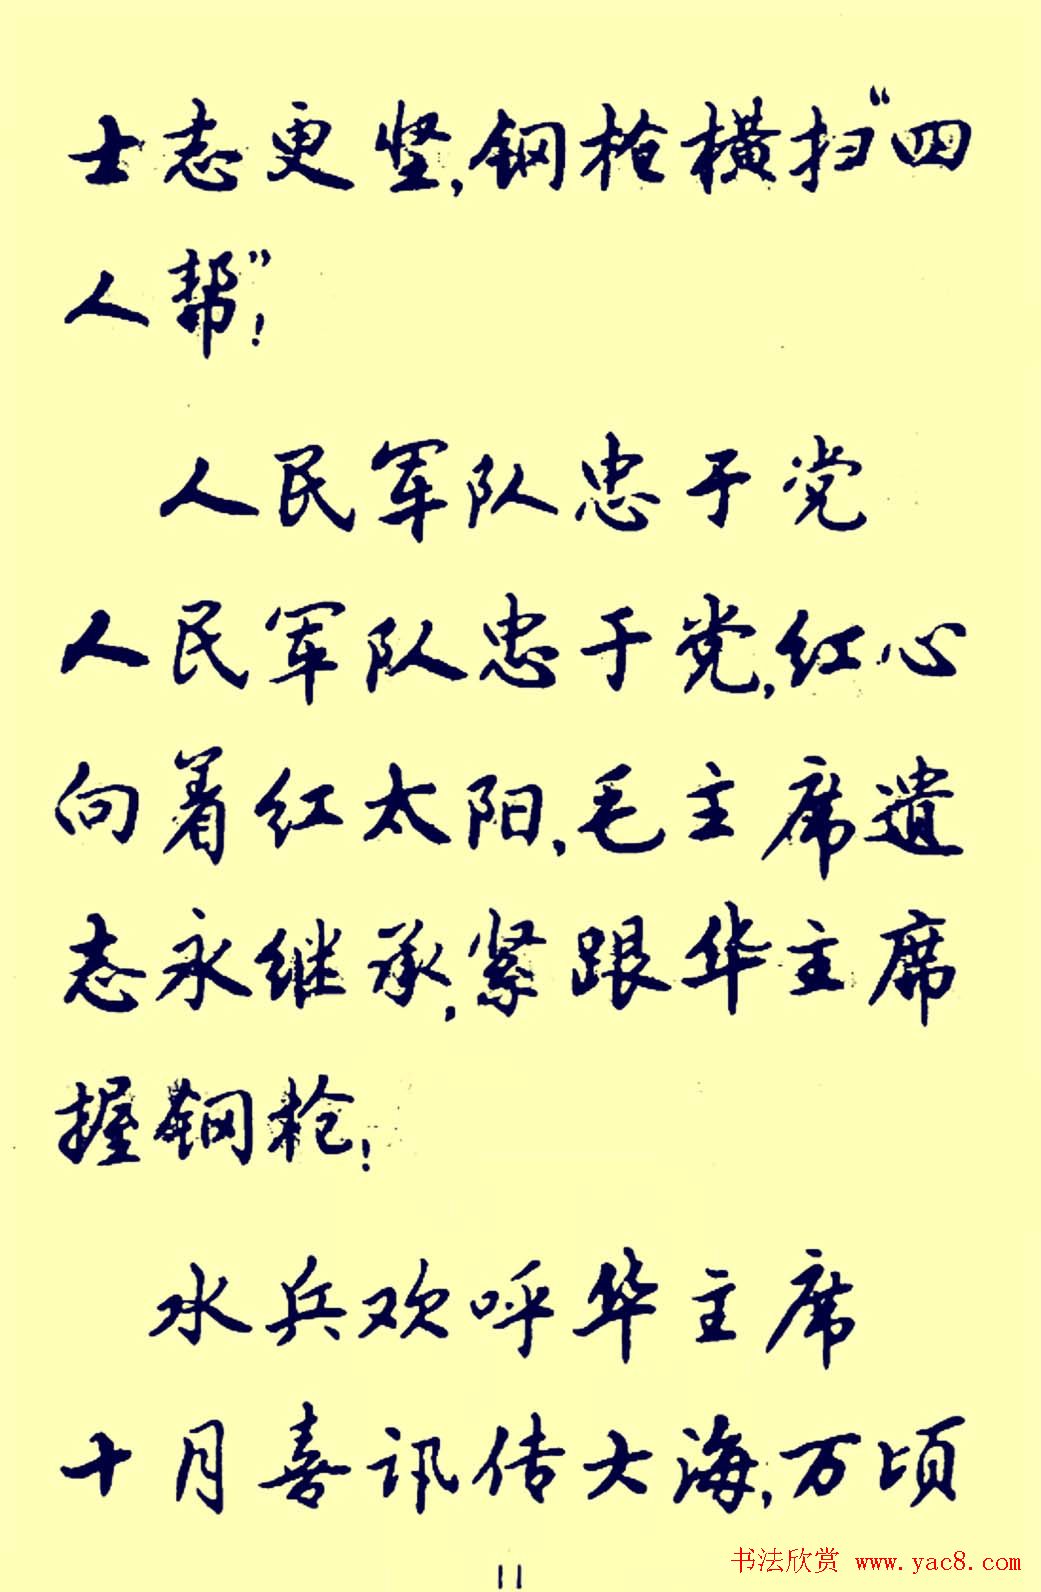 士志更坚,钢枪横扫“四
人帮”!
人民军队忠于党
人民军队忠于党,红心
向着红太阳,毛主席遗
志永继承,紧跟华主席
握钢枪!
水兵欢呼华主席
十月喜讯传大海,万顷
11
书法欣赏 www.yac8.com